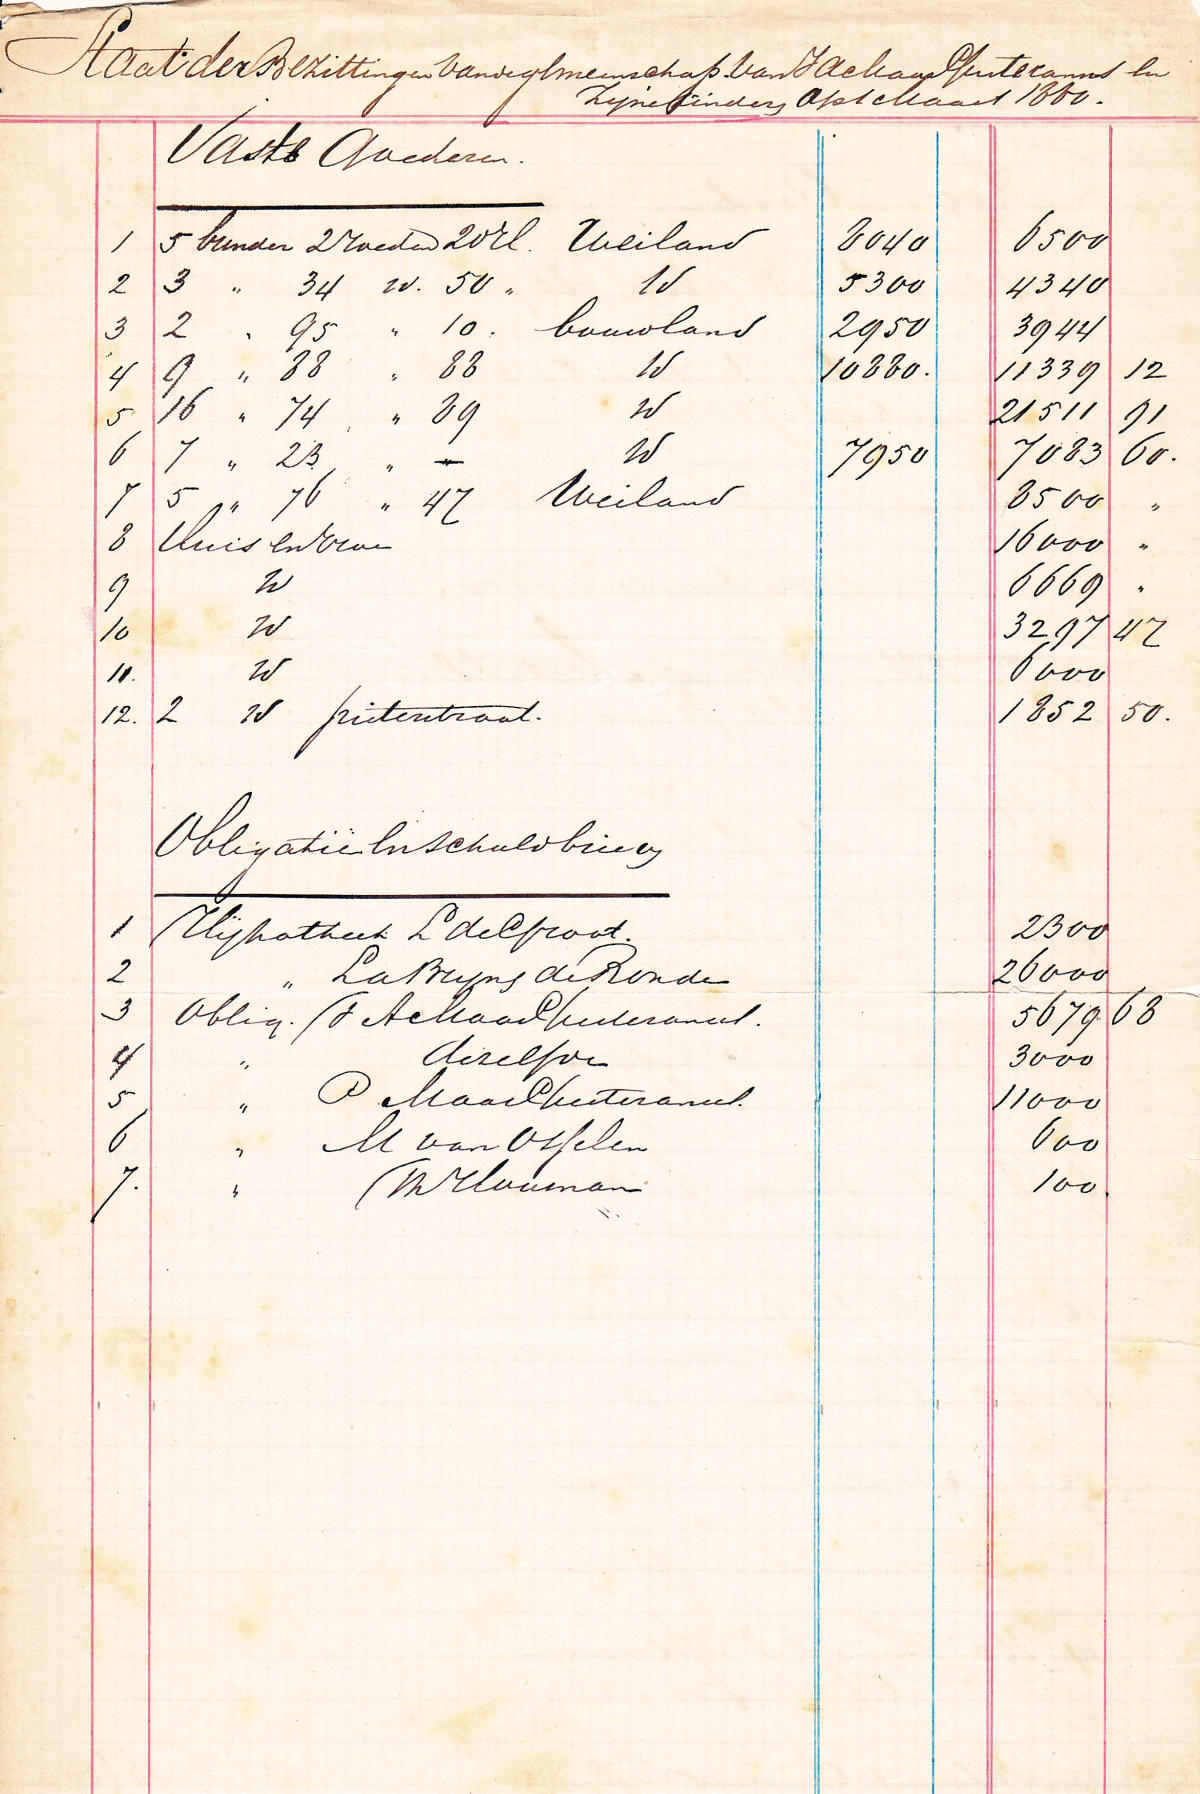 Staat der Bezittingen van de gemeenschap van J A Maas Geesteranus en
Zijne Kinderen Op 1 Maart 1880.
Vaste Goederen.
1 5 bunder 2 roeden 20 El. Weiland 8040 6500
2 3 " 34 id. 50 " Id 5300 4340
3 2 " 95 " 10. bouwland 2950 3944
4 9 " 88 " 88 Id 10880. 11339 12
5 16 " 74 " 89 Id 21511 91
6 7 " 23 " — Id 7950 7083 60.
7 5 " 76 " 47 Weiland 8500 "
8 Huis en Erve 16000 "
9 Id 6669 "
10 Id 3297 47
11. Id 6000
12. 2 Id 1852 50.
Obligatiën en schuldbrieven
1 Hypotheek L de Groot. 2300
2 " La Bruyns de Ronde 26000
3 Oblig. J A Maas Geesteranus. 5679 68
4 " dezelfde 3000
5 " P Maas Geesteranus. 11000
6 " M van Osselen 600
7. " 100